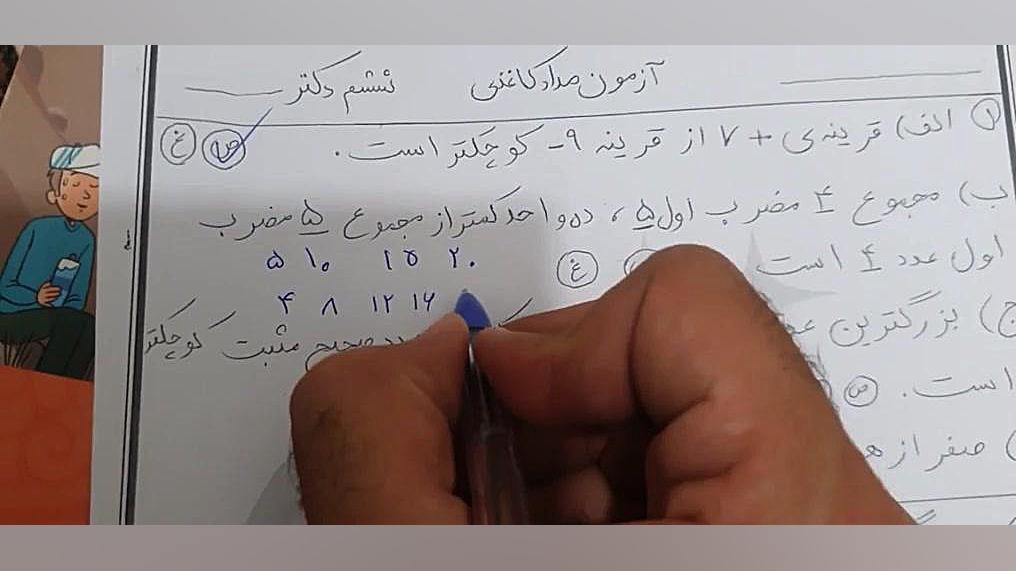 آزمون مداد کاغذی ششم دکتر
۱ الف) قرینه‌ی +۷ از قرینه ۹- کوچکتر است. ص غ
ب) مجموع ۴ مضرب اول ۵، ده واحد کمتر از مجموع ۵ مضرب
اول عدد ۴ است غ
۵ ۱۰ ۱۵ ۲۰
۴ ۸ ۱۲ ۱۶
ج) بزرگترین صحیح مثبت کوچکتر
است. ص
صفر از